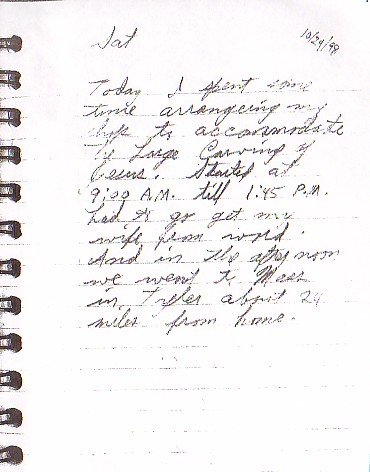 Sat 10/24/98
Today I spent some
time arrangeing my
shop to accommodate
the Large Carving of
Jesus. Started at
9:00 A.M. till 1:45 P.M.
had to go get my
wife from work.
And in the afternoon
we went to Mass
in about 24
miles from home.